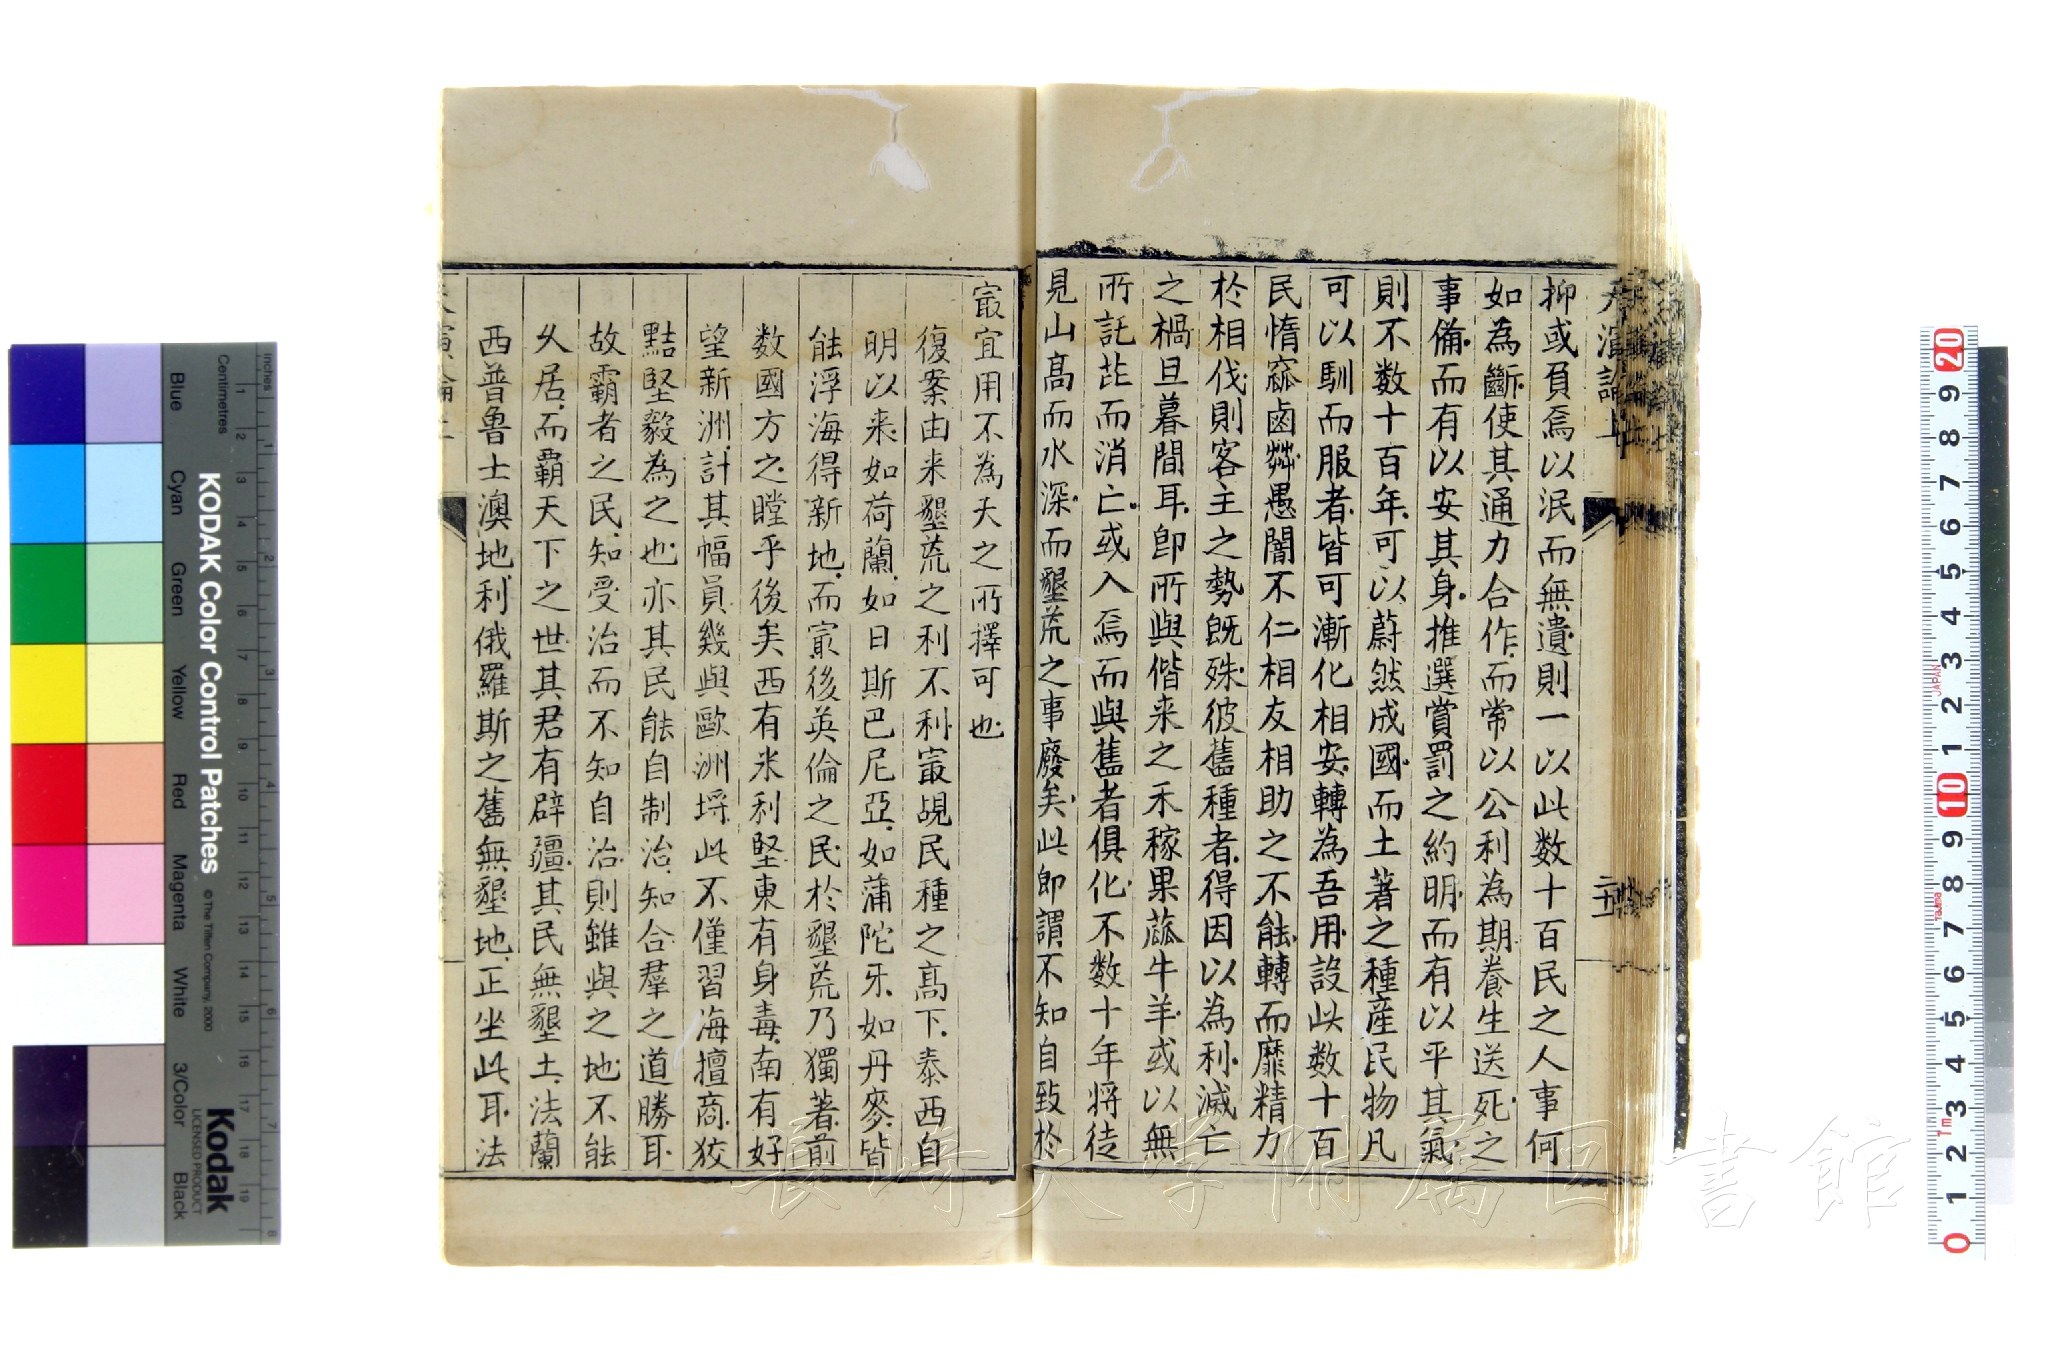 天演論上
二十五
抑或負焉以泯而無遺則一以此数十百民之人事何
如為斷使其通力合作而常以公利為期養生送死之
事備而有以安其身推選賞罰之約明而有以平其氣
則不数十百年可以蔚然成國而土著之種産民物凡
可以馴而服者皆可漸化相安轉為吾用設此数十百
民惰窳鹵莽愚闇不仁相友相助之不能轉而靡精力
於相伐則客主之勢既殊彼舊種者得因以為利滅亡
之禍旦暮間耳即所與偕来之禾稼果蓏牛羊或以無
所託芘而消亡或入焉而與舊者俱化不数十年将徒
見山高而水深而墾荒之事廢矣此即謂不知自致於
最宜用不為天之所擇可也
復案由来墾荒之利不利最覘民種之高下泰西自
明以来如荷蘭如日斯巴尼亞如蒲陀牙如丹麥皆
能浮海得新地而最後英倫之民於墾荒乃獨著前
数國方之瞠乎後矣西有米利堅東有身毒南有好
望新洲計其幅員幾與歐洲埒此不僅習海擅商狡
黠堅毅為之也亦其民能自制治知合羣之道勝耳
故霸者之民知受治而不知自治則雖與之地不能
久居而霸天下之世其君有辟疆其民無墾土法蘭
西普魯士澳地利俄羅斯之舊無墾地正坐此耳法
KODAK Color Control Patches
© The Tiffen Company, 2000
Kodak
LICENSED PRODUCT
Blue
Cyan
Green
Yellow
Red
Magenta
White
3/Color
Black
inches
Centimetres
JAPAN
Tajima
長崎大学附属図書館